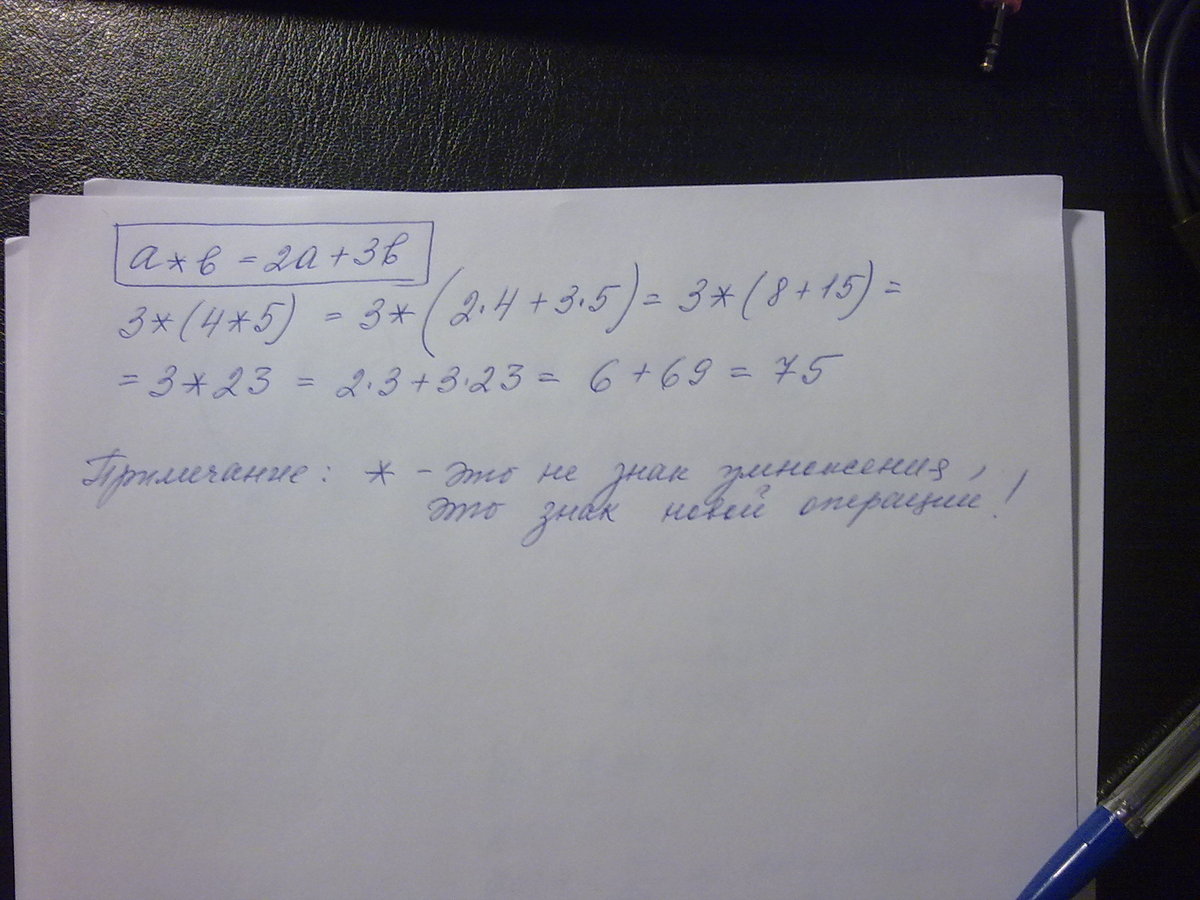 a * b = 2a + 3b
3*(4*5) = 3*(2·4 + 3·5) = 3*(8+15) =
= 3*23 = 2·3+3·23 = 6+69 = 75
Примечание: * – это не знак умножения,
это знак новой операции!